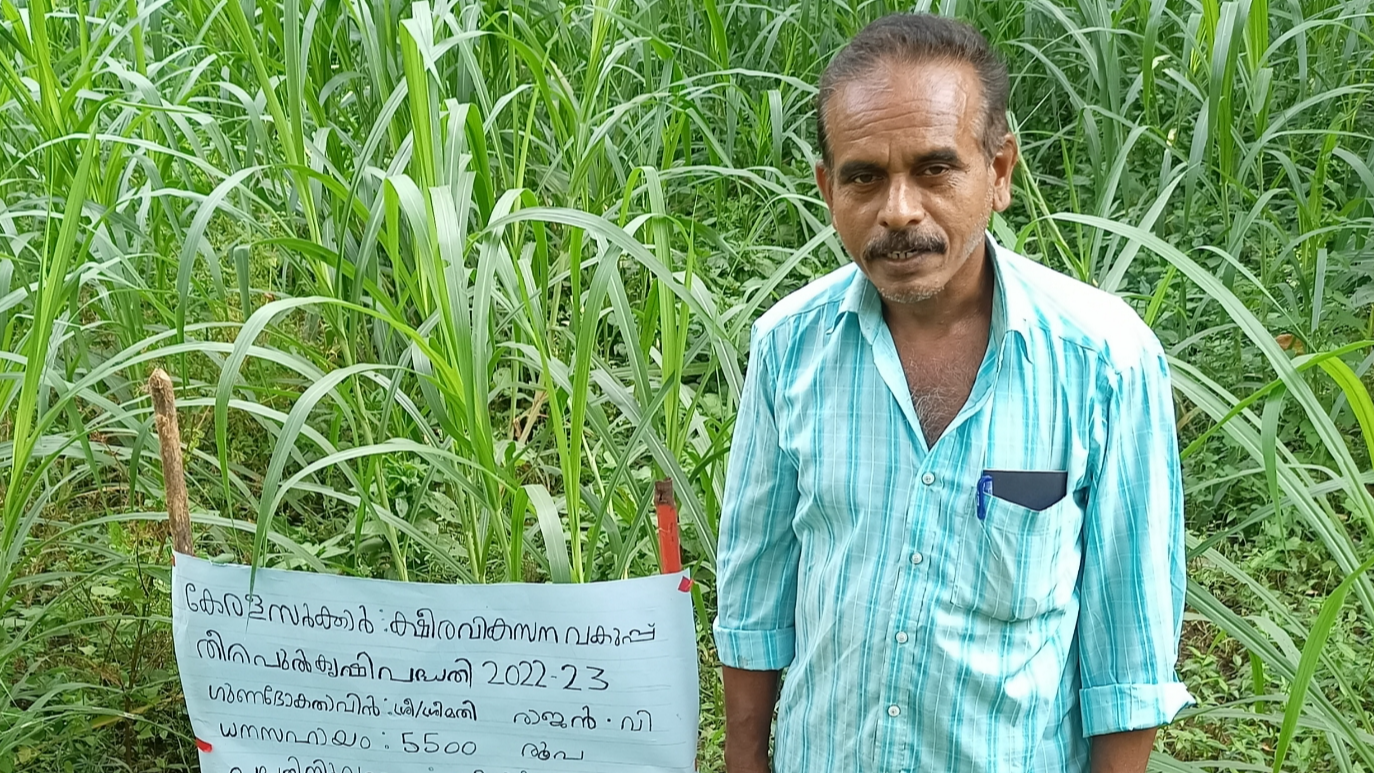 കേരളസർക്കാർ : ക്ഷീരവികസന വകുപ്പ്
തീറ്റപുൽകൃഷിപദ്ധതി 2022-23
ഗുണഭോക്താവിൻ : ശ്രീ/ശ്രീമതി രാജൻ . വി
ധനസഹായം : 5500 രൂപ